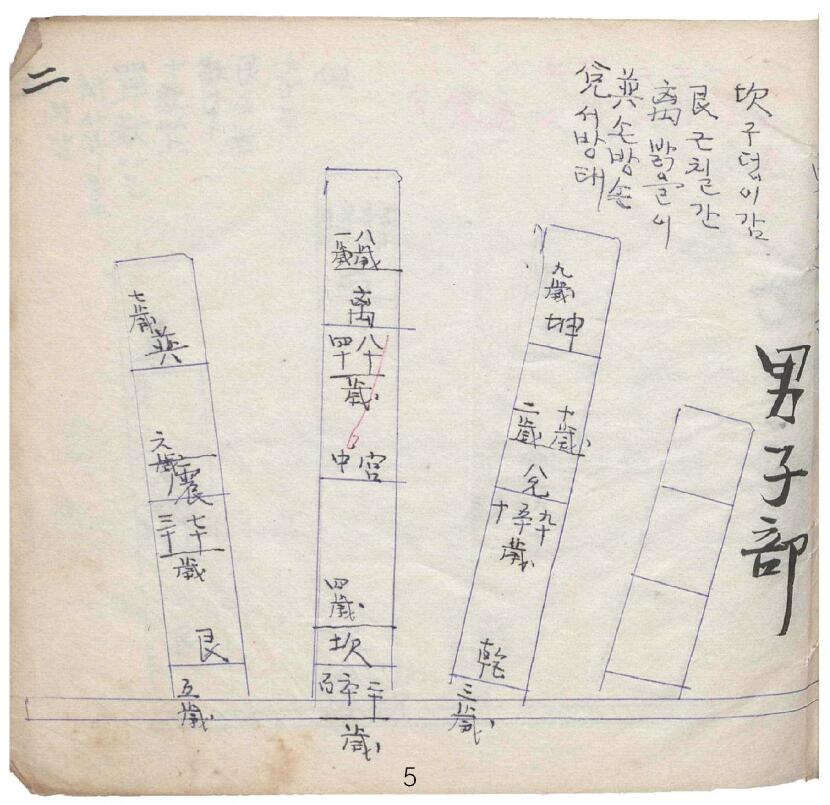 二
坎 구덩이 감
艮 근칠 간
离 밝을 이
巽 손방 손
兌 서방 태
男子部
九歲
坤
二歲 十歲
兌
乾
三歲
一歲 八歲
离
四十 八十
歲
中宮
四歲
坎
二十
歲
七歲
巽
震
三十 七十
歲
艮
五歲
5